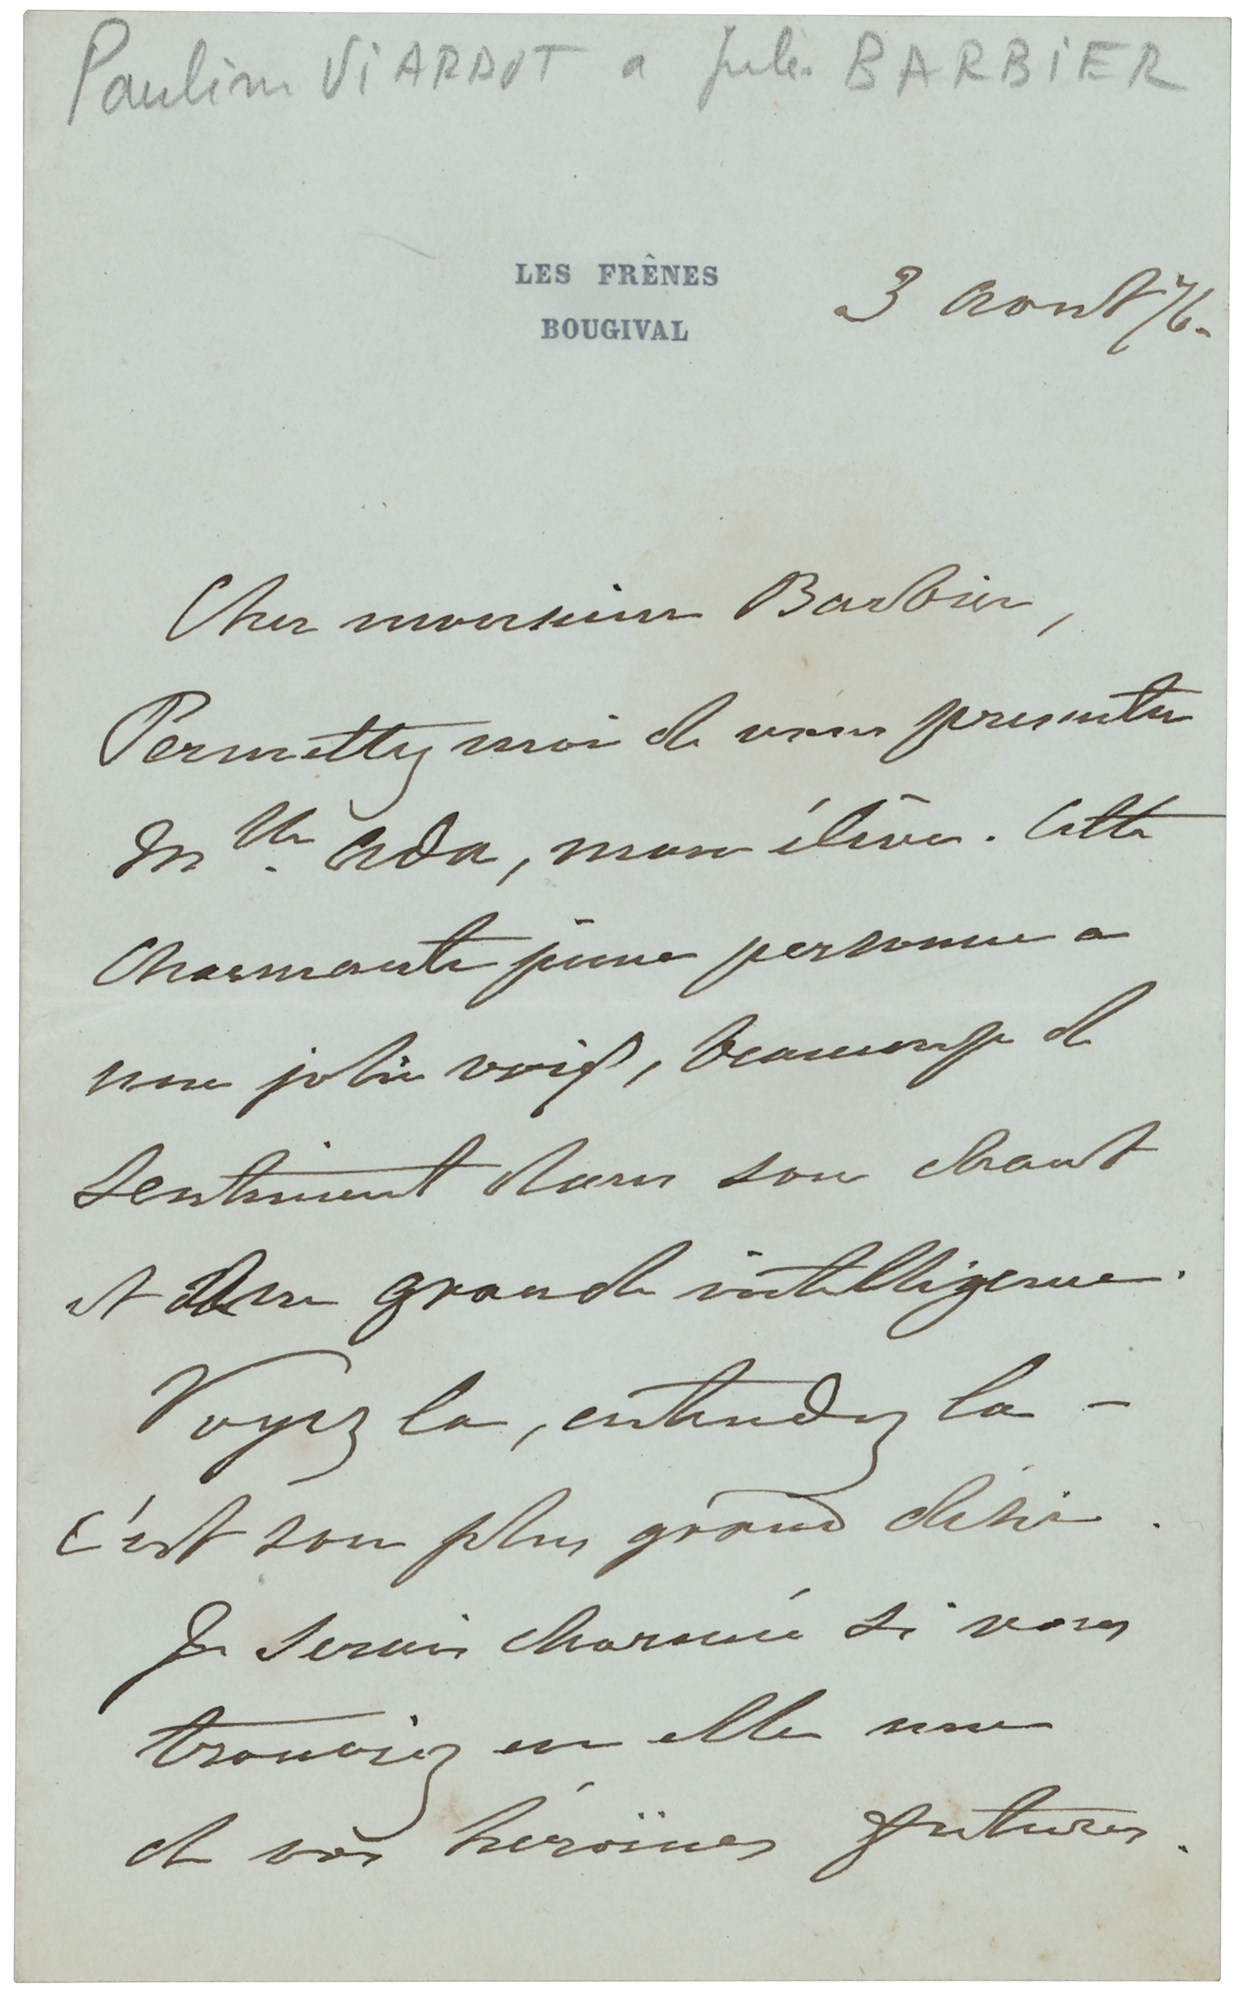 Pauline VIARDOT a Jules BARBIER
LES FRÊNES
BOUGIVAL
3 aout 76.
Cher monsieur Barbier,
Permettez moi de vous presenter
Mlle. Ada, mon élève. Cette
charmante jeune personne a
une jolie voix, beaucoup de
sentiment dans son chant
et une grande intelligence.
Voyez la, entendez la –
c'est son plus grand désir.
Je serais charmée si vous
trouviez en elle une
de vos héroïnes futures.